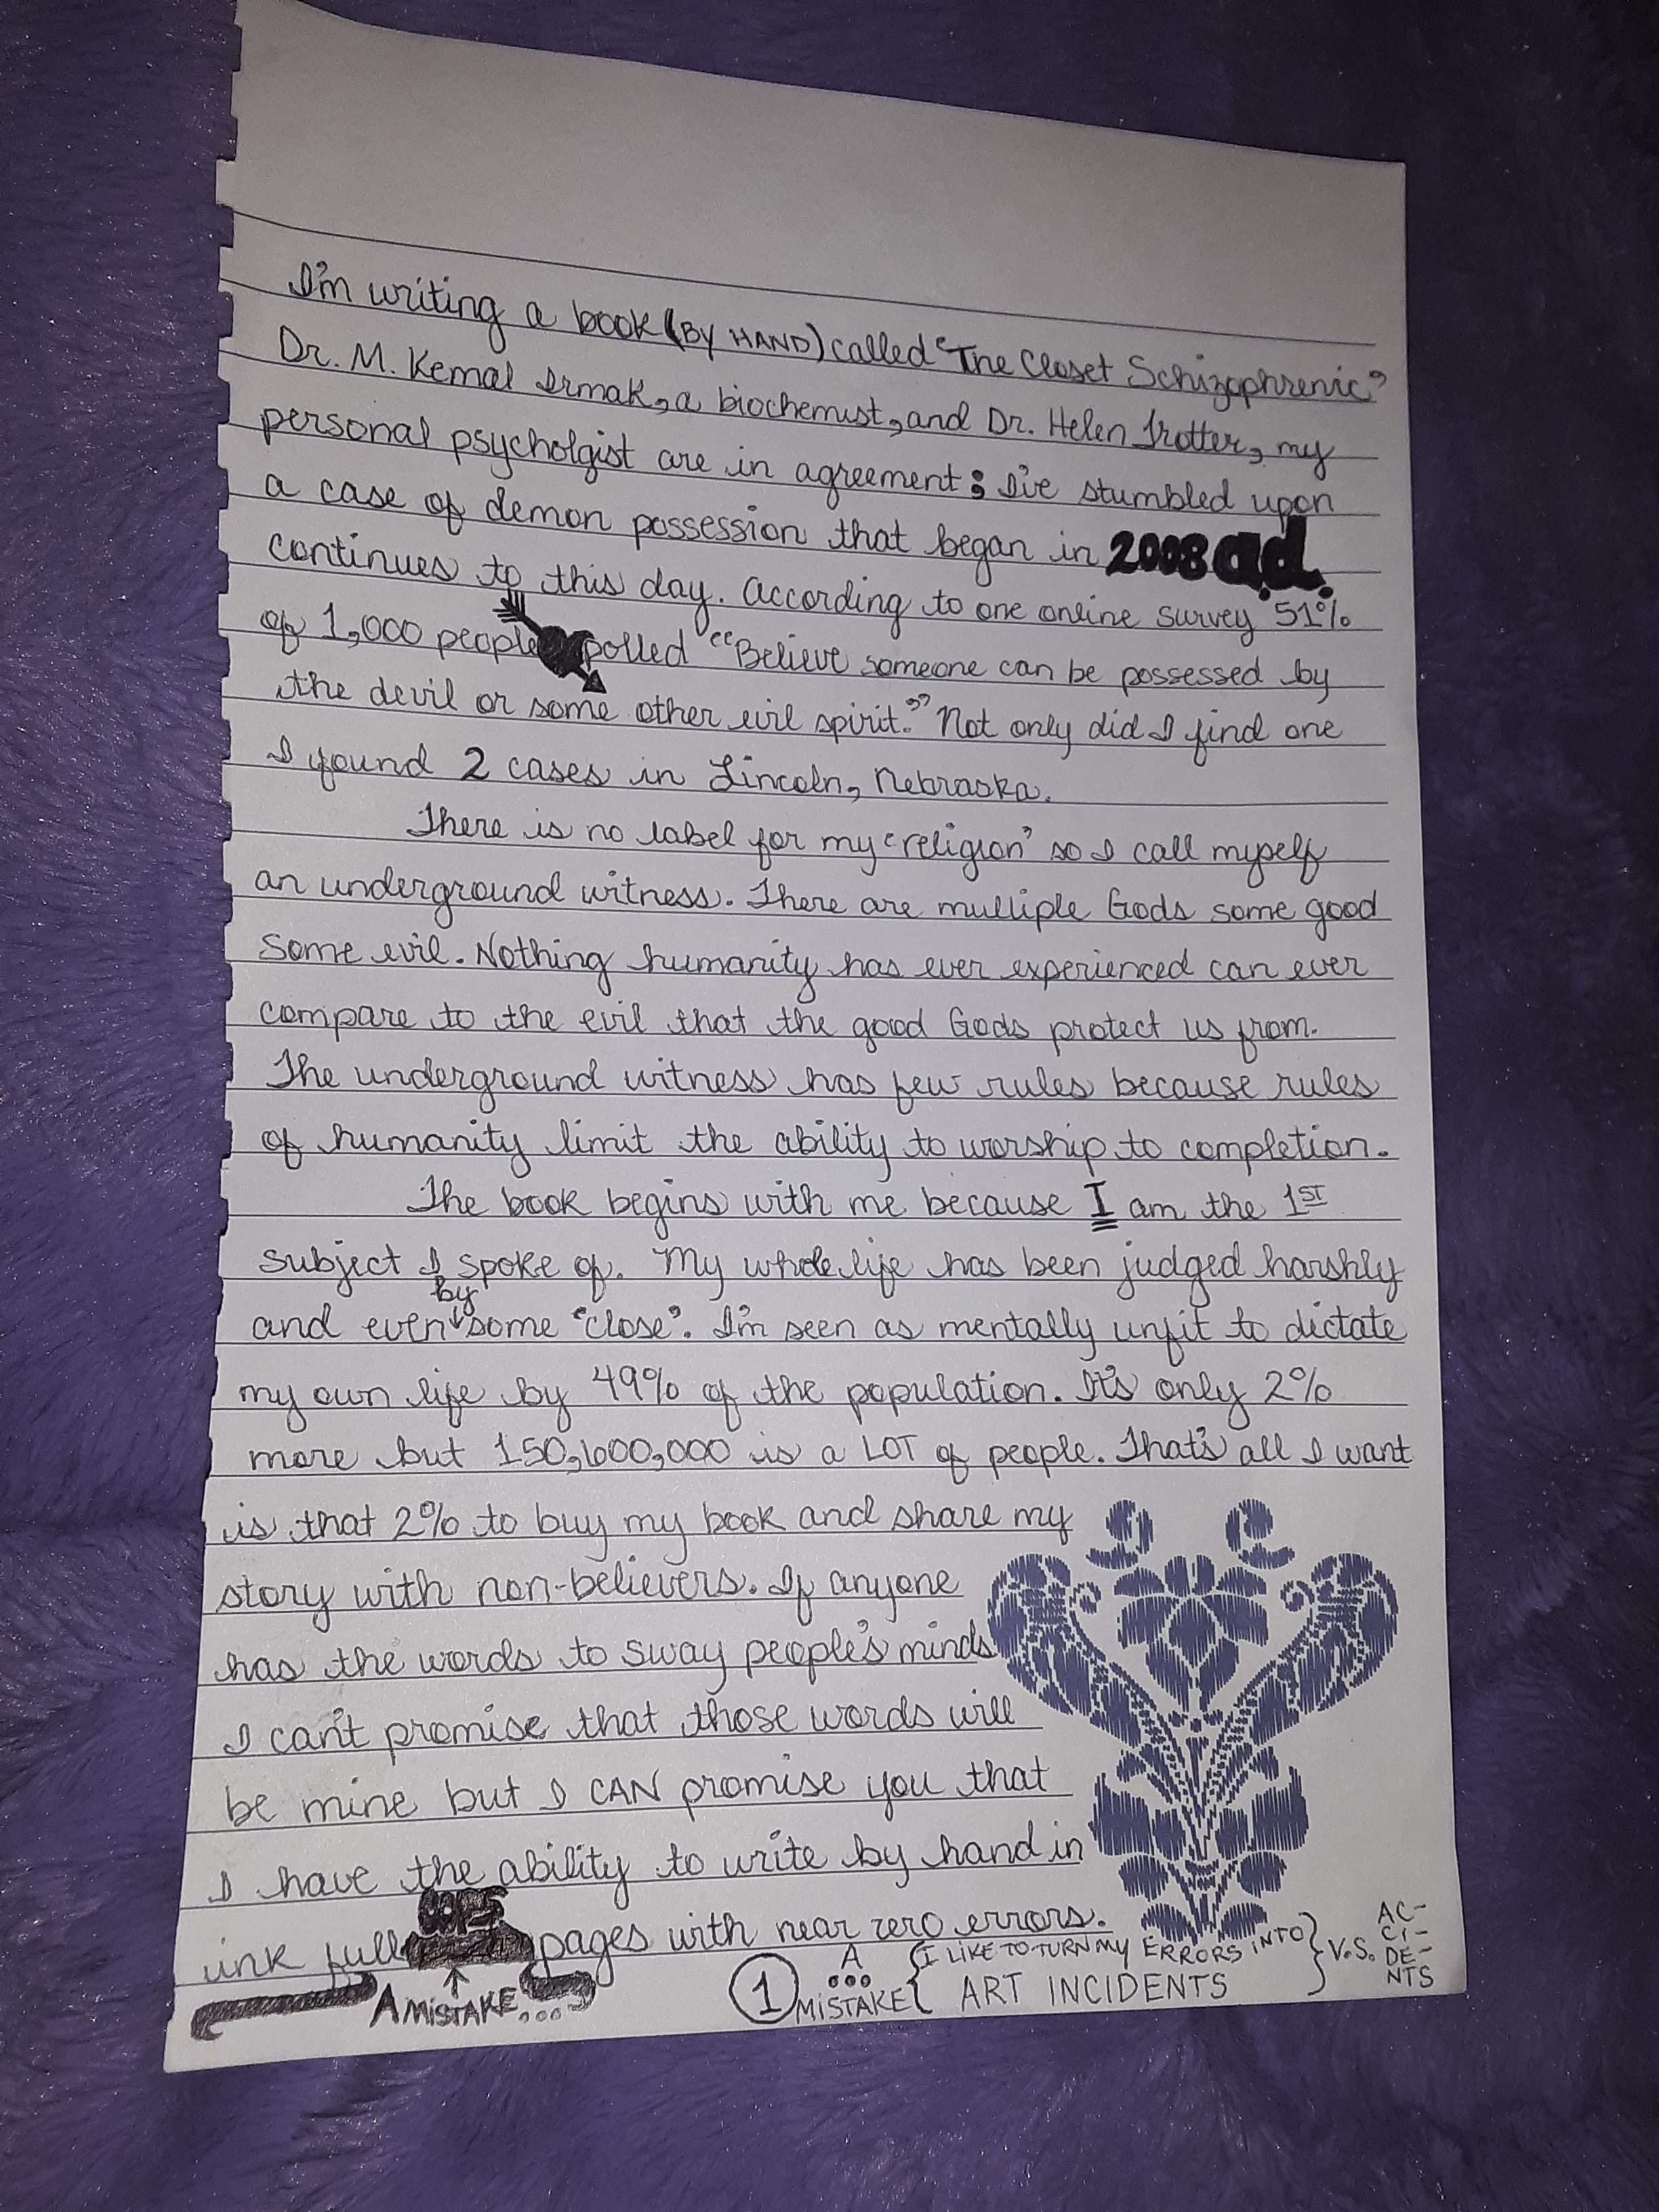 I'm writing a book (BY HAND) called "The Closet Schizophrenic"
Dr. M. Kemal Irmak, a biochemist, and Dr. Helen Trotter, my
personal psycholgist are in agreement; I've stumbled upon
a case of demon possession that began in 2008 a.d.
continues to this day. According to one online survey 51%
of 1,000 people polled "Believe someone can be possessed by
the devil or some other evil spirit." Not only did I find one
I found 2 cases in Lincoln, Nebraska.
There is no label for my 'religion' so I call myself
an underground witness. There are multiple Gods some good
some evil. Nothing humanity has ever experienced can ever
compare to the evil that the good Gods protect us from.
The underground witness has few rules because rules
of humanity limit the ability to worship to completion.
The book begins with me because I am the 1ST
subject I spoke of. My whole life has been judged harshly
and even by some "close". I'm seen as mentally unfit to dictate
my own life by 49% of the population. It's only 2%
more but 150,600,000 is a LOT of people. That's all I want
is that 2% to buy my book and share my
story with non-believers. If anyone
has the words to sway people's minds
I can't promise that those words will
be mine but I CAN promise you that
I have the ability to write by hand in
OOPS
ink full pages with near zero errors.
A MISTAKE...
1 A ... MISTAKE { I LIKE TO TURN MY ERRORS INTO
ART INCIDENTS } V.S. AC-
CI-
DE-
NTS